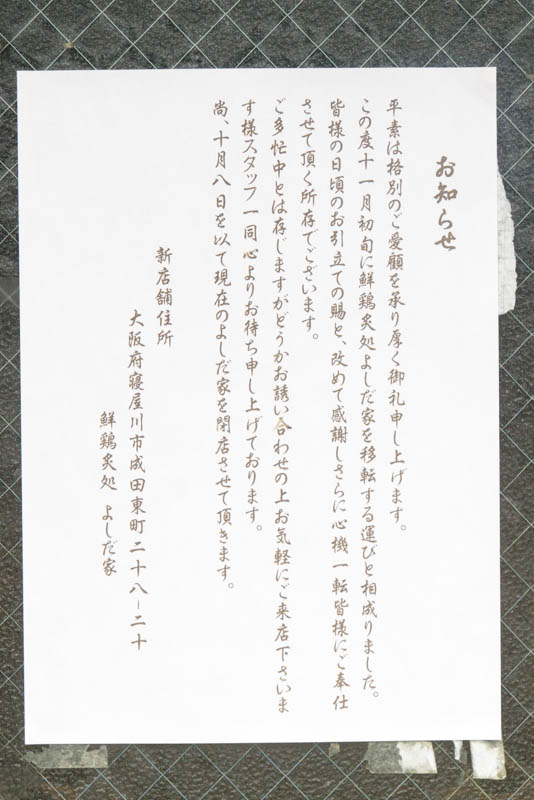 お知らせ
平素は格別のご愛顧を承り厚く御礼申し上げます。
この度十一月初旬に鮮鶏炙処よしだ家を移転する運びと相成りました。
皆様の日頃のお引立ての賜と、改めて感謝しさらに心機一転皆様にご奉仕
させて頂く所存でございます。
ご多忙中とは存じますがどうかお誘い合わせの上お気軽にご来店下さいま
す様スタッフ一同心よりお待ち申し上げております。
尚、十月八日を以て現在のよしだ家を閉店させて頂きます。
新店舗住所
大阪府寝屋川市成田東町二十八−二十
鮮鶏炙処 よしだ家